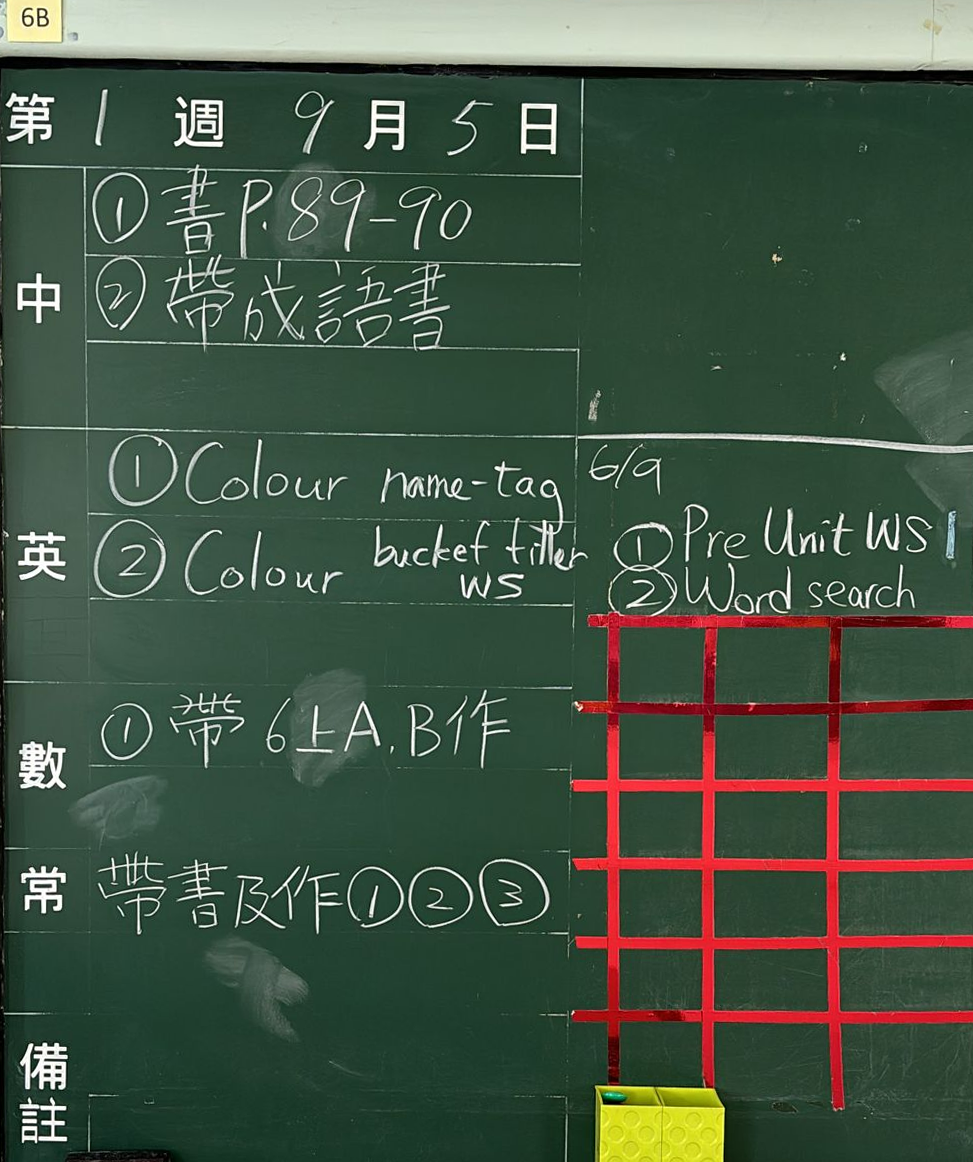 6B
第 1 週 9 月 5 日
中
① 書 P.89-90
② 帶成語書
英
① Colour name-tag
② Colour bucket filler
WS
6/9
① Pre Unit WS 1
② Word search
數
① 帶 6上A.B作
常
帶書及作①②③
備註